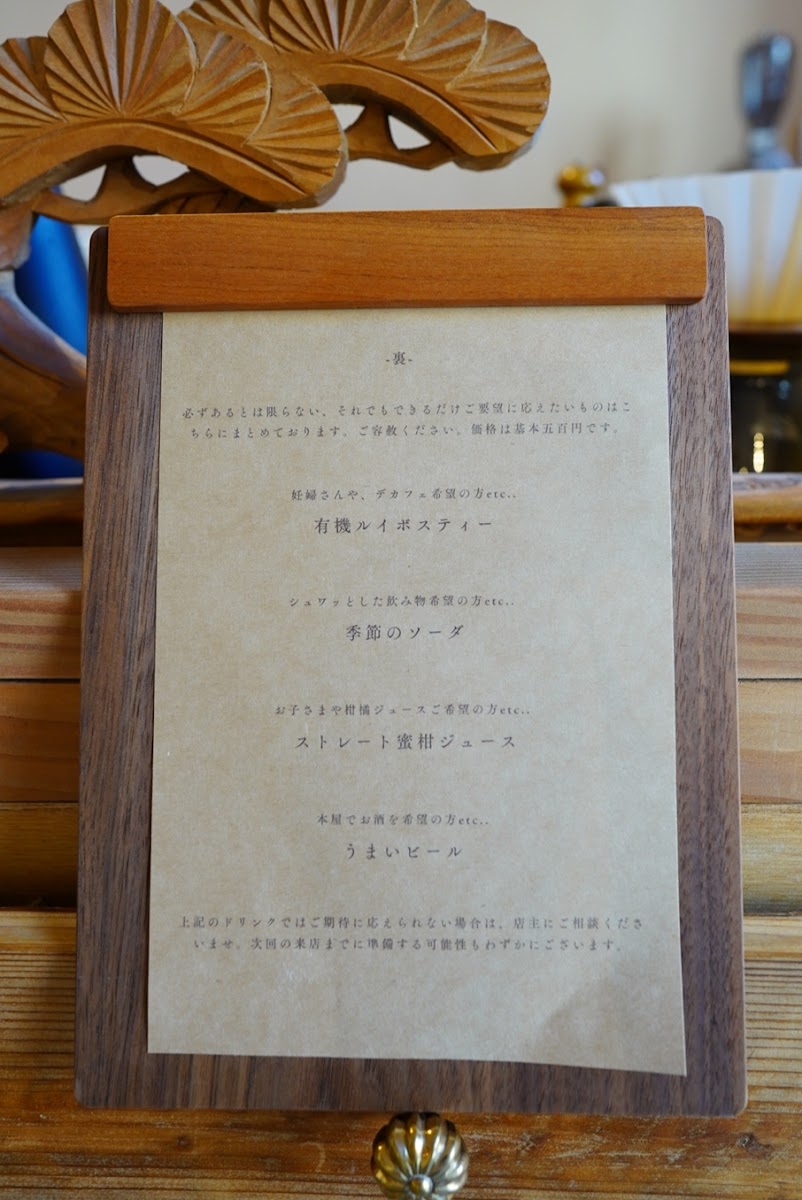 -裏-
必ずあるとは限らない、それでもできるだけご要望に応えたいものはこ
ちらにまとめております。ご容赦ください。価格は基本五百円です。
妊婦さんや、デカフェ希望の方etc..
有機ルイボスティー
シュワッとした飲み物希望の方etc..
季節のソーダ
お子さまや柑橘ジュースご希望の方etc..
ストレート蜜柑ジュース
本屋でお酒を希望の方etc..
うまいビール
上記のドリンクではご期待に応えられない場合は、店主にご相談くださ
いませ。次回の来店までに準備する可能性もわずかにございます。